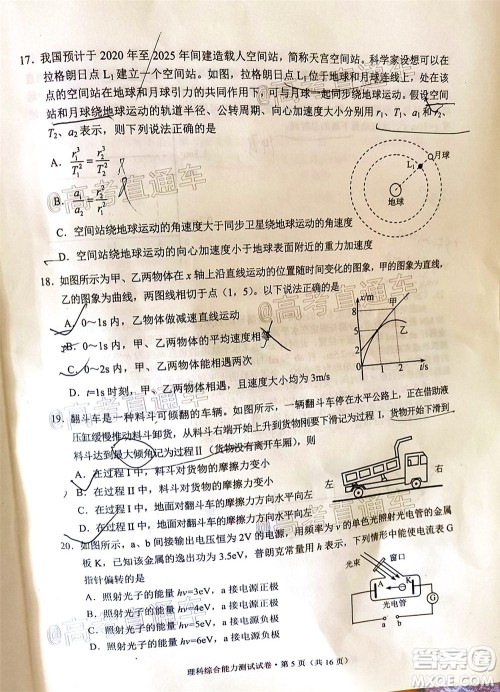 17. 我国预计于 2020 年至 2025 年间建造载人空间站，简称天宫空间站。科学家设想可以在
拉格朗日点 L₁ 建立一个空间站。如图，拉格朗日点 L₁ 位于地球和月球连线上，处在该
点的空间站在地球和月球引力的共同作用下，可与月球一起同步绕地球运动。假设空间
站和月球绕地球运动的轨道半径、公转周期、向心加速度大小分别用 r₁、T₁、a₁ 和 r₂、
T₂、a₂ 表示，则下列说法正确的是
A. r₁³/T₁² = r₂³/T₂²
月球
L₁
地球
C. 空间站绕地球运动的角速度大于同步卫星绕地球运动的角速度
D. 空间站绕地球运动的向心加速度大小小于地球表面附近的重力加速度
18. 如图所示为甲、乙两物体在 x 轴上沿直线运动的位置随时间变化的图象，甲的图象为直线，
乙的图象为曲线，两图线交于点（1，5）。以下说法正确的是
A. 0～1s 内，乙物体做减速直线运动
B. 0～1s 内，甲物体与乙物体的平均速度相等
C. 0～2s 内，甲、乙物体能相遇两次
D. t=1s 时刻，甲、乙物体的速度大小均为 3m/s
x/m
甲
乙
8
5
0 1 2 t/s
19. 翻斗车是一种料斗可倾翻的车辆。如图所示，一辆翻斗车在水平公路上，正在借助液
压缸缓慢推动料斗卸货，从料斗刚开始倾斜到货物刚开始下滑记为过程 I，货物下滑到
料斗达到最大倾角记为过程 II（货物没有离开车厢），则
A. 在过程 I 中，料斗对货物的摩擦力变小
B. 在过程 II 中，料斗对货物的摩擦力变小
C. 在过程 I 中，地面对车的摩擦力方向水平向左
D. 在过程 II 中，地面对车的摩擦力方向水平向左
左
右
20. 如图所示，a、b 间接输出电压为 2V 的电源，用频率为 ν 的单色光照射光电管的金属
板 K，已知该金属的逸出功为 3.5eV，普朗克常量用 h 表示，下列情形中能使电流表 G
指针偏转的是
A. 照射光子的能量 hν=3eV，a 接电源正极
B. 照射光子的能量 hν=4eV，a 接电源正极
光束
窗口
A
K
光电管
G
a
b
理科综合能力测试试卷·第 5 页（共 16 页）
@高考直通车
@高考直通车
@高考直通车